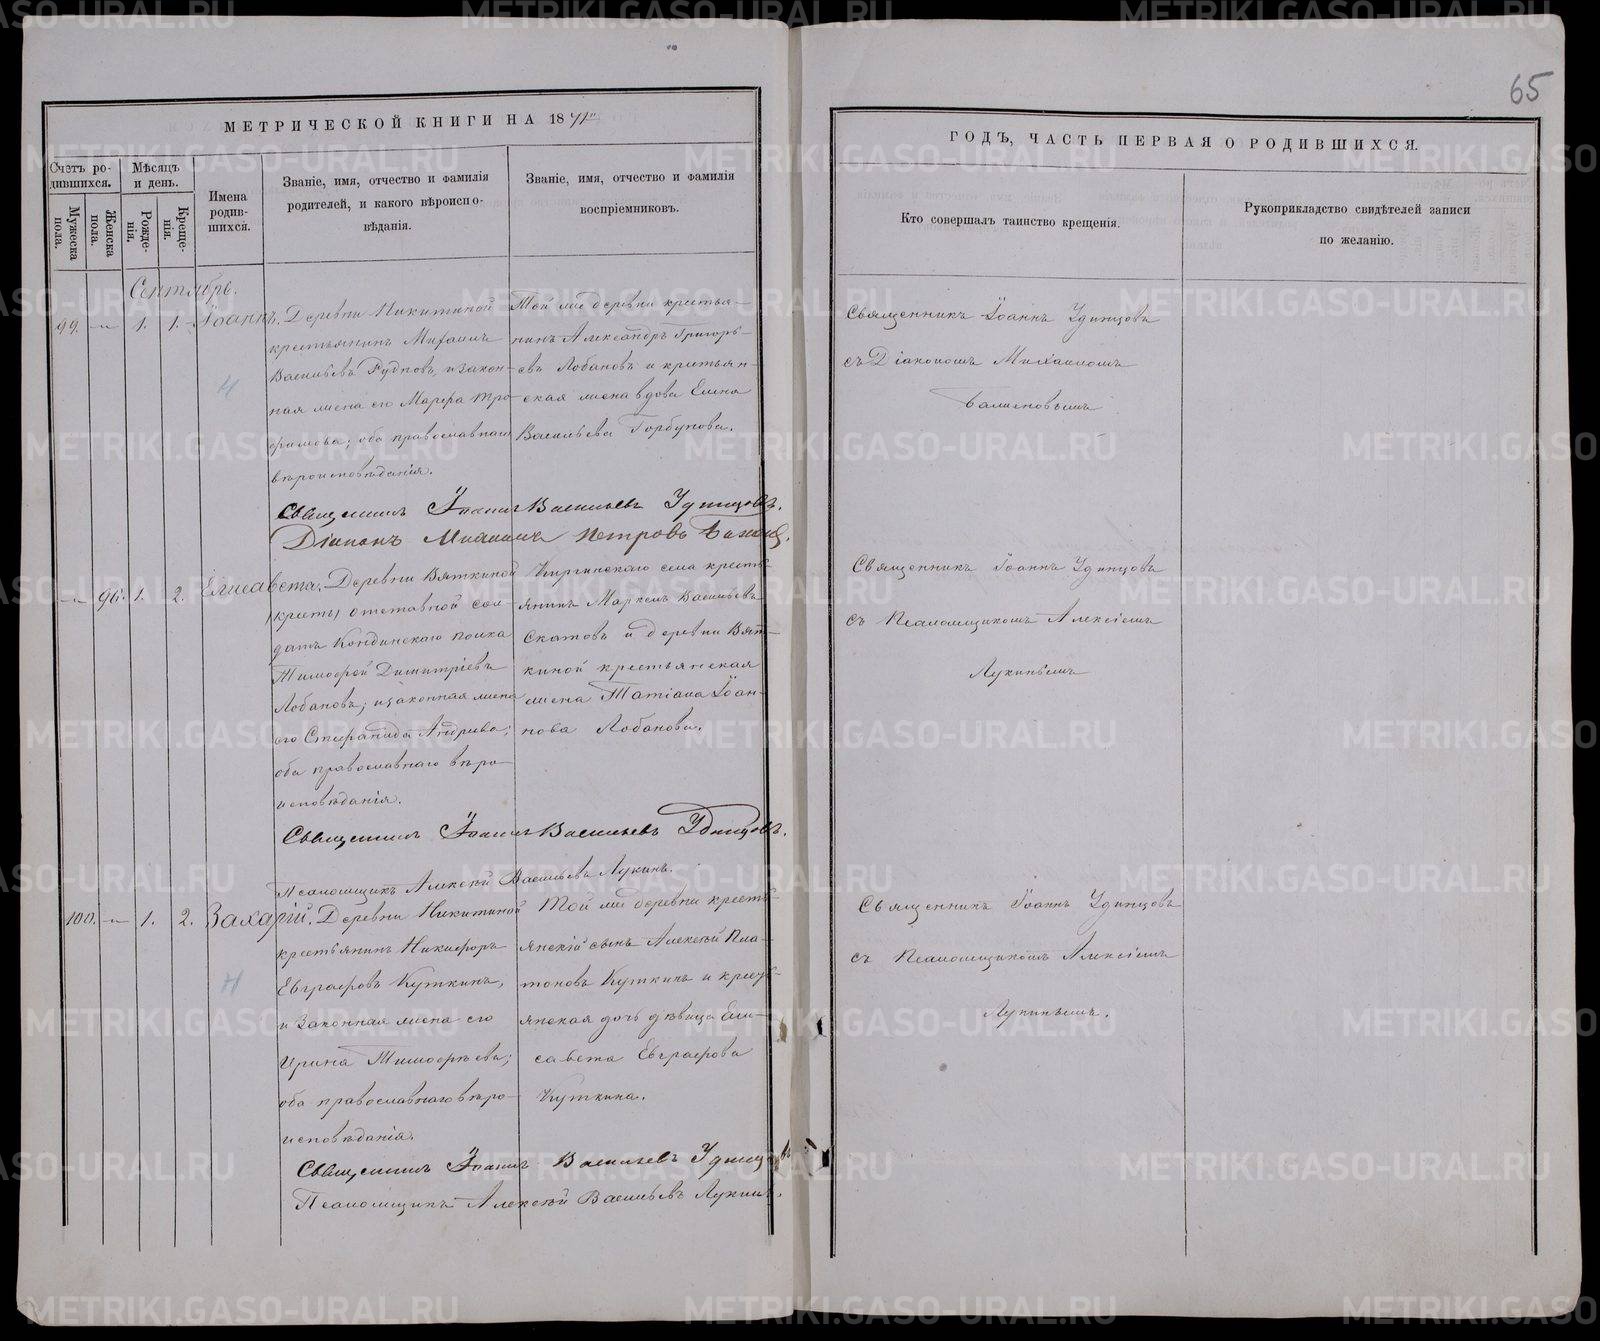 65
МЕТРИЧЕСКОЙ КНИГИ НА 187
ГОДЪ, ЧАСТЬ ПЕРВАЯ О РОДИВШИХСЯ.
Счетъ ро-
дившихся.
Мужеска
пола.
Женска
пола.
Мѣсяцъ
и день.
Рожде-
нія.
Креще-
нія.
Имена
родив-
шихся.
Званіе, имя, отчество и фамилія
родителей, и какого вѣроиспо-
вѣданія.
Званіе, имя, отчество и фамилія
воспріемниковъ.
Кто совершалъ таинство крещенія.
Рукоприкладство свидѣтелей записи
по желанію.
Сентябрь.
99. 1. 1. Іоаннъ.
Деревни Никитиной
крестьянинъ Михаилъ
Васильевъ и закон-
ная жена его Марѳа Тро-
фимова; оба православнаго
вѣроисповѣданія.
Той же деревни крестья-
нинъ Александръ Григорь-
евъ Лобановъ и крестьян-
ская жена вдова Елена
Васильева Горбунова.
Священникъ Іоаннъ Удинцовъ
съ Діакономъ Михаиломъ
Священникъ Іоаннъ Васильевъ Удинцовъ.
Діаконъ Михаилъ Петровъ
96. 1. 2. Елисавета.
Деревни Вяткиной
отставной сол-
датъ Кондинскаго полка
Тимофей Димитріевъ
Лобановъ, и законная жена
его Стефанида Андреева;
оба православнаго вѣро-
исповѣданія.
Киргинскаго села кресть-
янинъ Маркелъ Васильевъ
Скатовъ и деревни Вят-
киной крестьянская
жена Татіана Іоан-
нова Лобанова.
Священникъ Іоаннъ Удинцовъ
съ Псаломщикомъ Алексіемъ
Лукинымъ
Священникъ Іоаннъ Васильевъ Удинцовъ.
Псаломщикъ Алексѣй Васильевъ Лукинъ.
100. 1. 2. Захарій.
Деревни Никитиной
крестьянинъ Никифоръ
Евграфовъ Куткинъ,
и законная жена его
Ирина Тимофѣева;
оба православнаго вѣро-
исповѣданія.
Той же деревни кресть-
янскій сынъ Алексѣй Пла-
тоновъ Куткинъ и кресть-
янская дочь дѣвица Ели-
савета Евграфова
Куткина.
Священникъ Іоаннъ Удинцовъ
съ Псаломщикомъ Алексіемъ
Лукинымъ.
Священникъ Іоаннъ Васильевъ Удинцовъ
Псаломщикъ Алексѣй Васильевъ Лукинъ.
METRIKI.GASO-URAL.RU